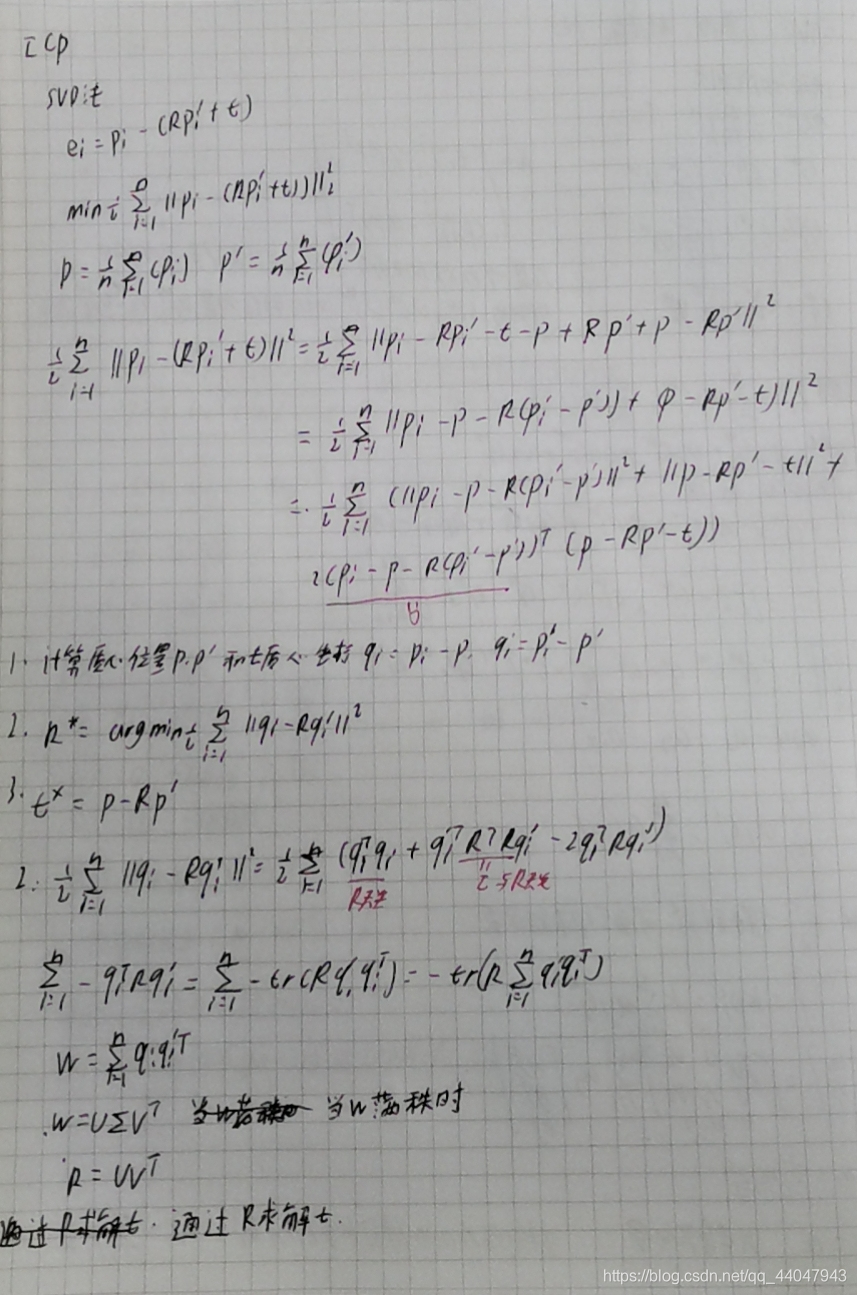 ICP
SVD法
ei = pi - (Rpi' + t)
min ½ Σⁿᵢ₌₁ ||pi - (Rpi'+t)||²₂
p = 1/n Σⁿᵢ₌₁ (pi) p' = 1/n Σⁿᵢ₌₁ (pi')
½ Σⁿᵢ₌₁ ||pi - (Rpi'+t)||² = ½ Σⁿᵢ₌₁ ||pi - Rpi' - t - p + Rp' + p - Rp'||²
= ½ Σⁿᵢ₌₁ ||pi - p - R(pi' - p')) + (p - Rp' - t)||²
= ½ Σⁿᵢ₌₁ (||pi - p - R(pi' - p')||² + ||p - Rp' - t||² +
2(pi - p - R(pi' - p'))ᵀ (p - Rp' - t))
0
1. 计算质心位置p.p' 和去质心坐标 qi = pi - p. qi' = pi' - p'
2. R* = argmin ½ Σⁿᵢ₌₁ ||qi - Rqi'||²
3. t* = p - Rp'
2. ½ Σⁿᵢ₌₁ ||qi - Rqi'||² = ½ Σⁿᵢ₌₁ (qiᵀqi + qi'ᵀRᵀRqi' - 2qiᵀRqi')
R无关 I 与R无关
Σⁿᵢ₌₁ - qiᵀRqi' = Σⁿᵢ₌₁ - tr(Rqi'qiᵀ) = - tr(R Σⁿᵢ₌₁ qi'qiᵀ)
W = Σⁿᵢ₌₁ qiqi'ᵀ
W = UΣVᵀ 当W满秩时
R = UVᵀ
通过R求解t. 通过R求解t.
https://blog.csdn.net/qq_44047943